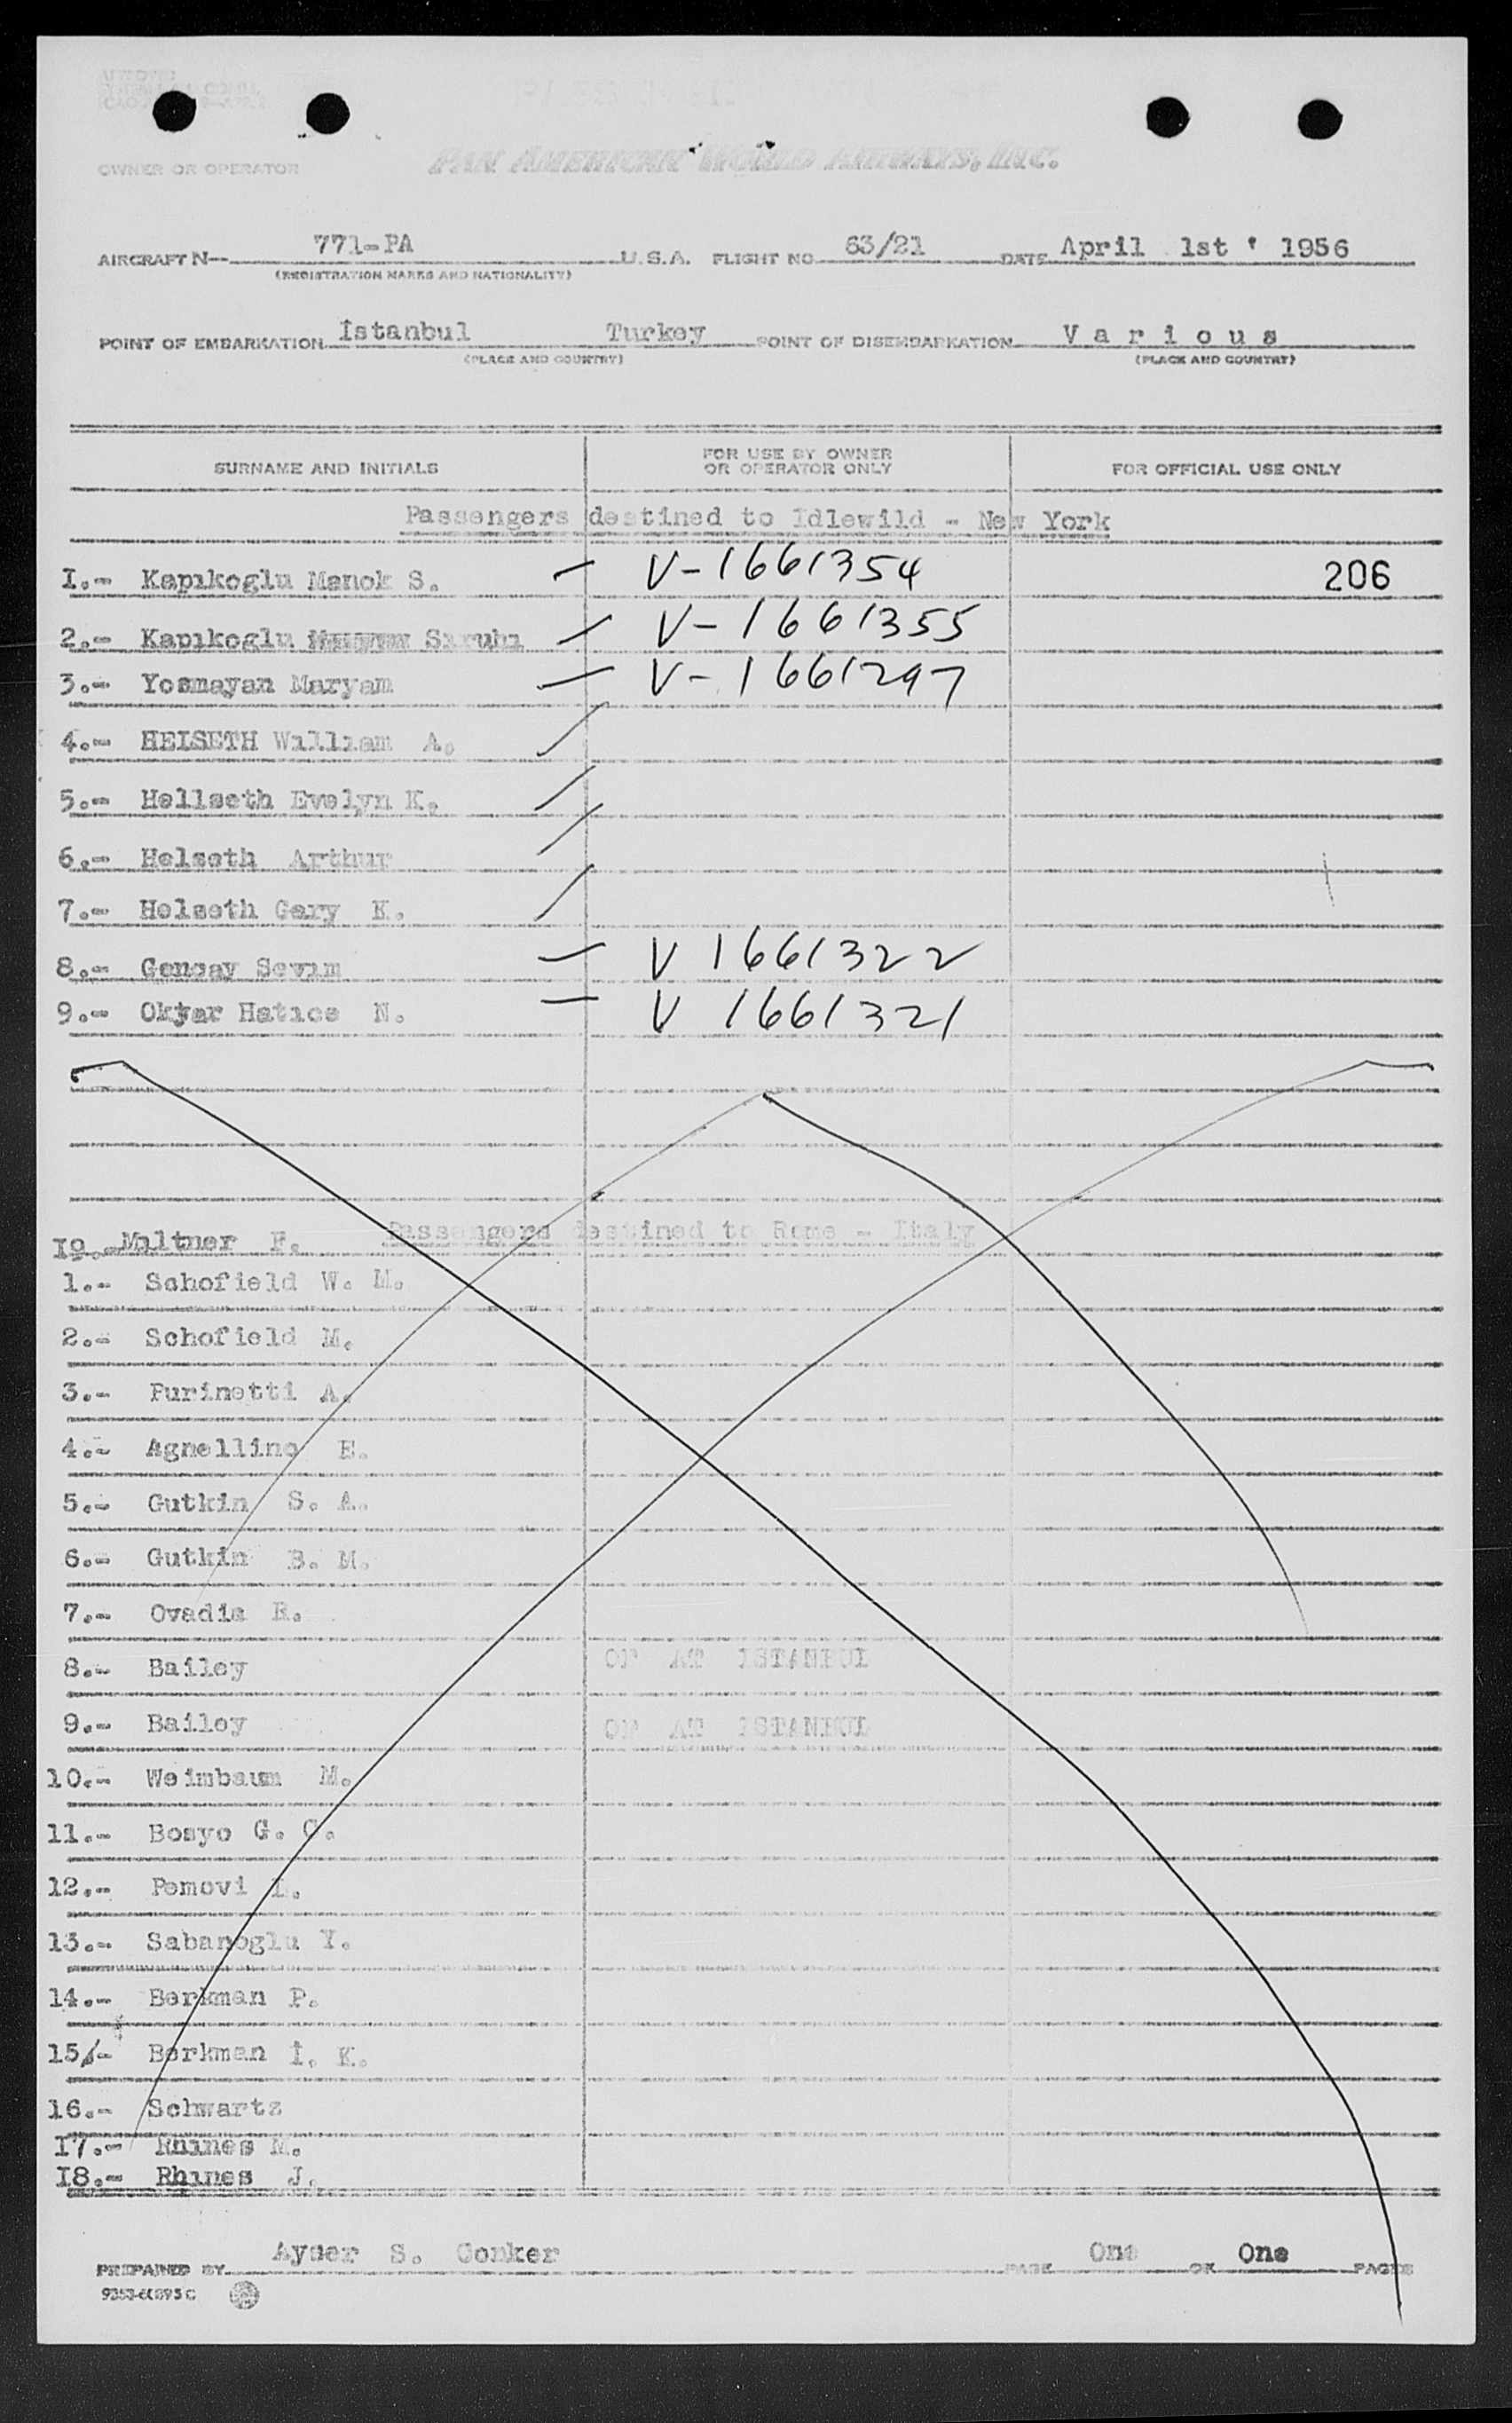 OWNER OR OPERATOR PAN AMERICAN WORLD AIRWAYS, INC.
AIRCRAFT N-- 771-PA U.S.A. FLIGHT NO. 63/21 DATE April 1st ' 1956
(REGISTRATION MARKS AND NATIONALITY)
POINT OF EMBARKATION İstanbul Turkey POINT OF DISEMBARKATION V a r i o u s
(PLACE AND COUNTRY) (PLACE AND COUNTRY)
SURNAME AND INITIALS FOR USE BY OWNER OR OPERATOR ONLY FOR OFFICIAL USE ONLY
Passengers destined to Idlewild - New York
I.- Kapıkoglu Manok S. - V-1661354 206
2.- Kapıkoglu Sıruhı - V-1661355
3.- Yosmayan Maryam - V-1661297
4.- HEISETH Wıllıam A. /
5.- Hellseth Evelyn K. /
6.- Helseth Arthur /
7.- Helseth Gary K. /
8.- Gencay Sevım - V 1661322
9.- Okyar Hatıce N. - V 1661321
Passengers destined to Rome - Italy
I9.- Maltner F.
1.- Schofield W. M.
2.- Schofield M.
3.- Purinetti A.
4.- Agnellino E.
5.- Gutkin S. A.
6.- Gutkin B. M.
7.- Ovadia R.
8.- Bailey OF AT ISTANBUL
9.- Bailey OF AT ISTANBUL
10.- Weimbaum M.
11.- Bosyo G. C.
12.- Pemovi I.
13.- Sabanoglu Y.
14.- Berkman P.
15.- Berkman İ. K.
16.- Schwartz
I7.- Rhınes M.
I8.- Rhınes J.
PREPARED BY Ayser S. Conker PAGE One OF One PAGES